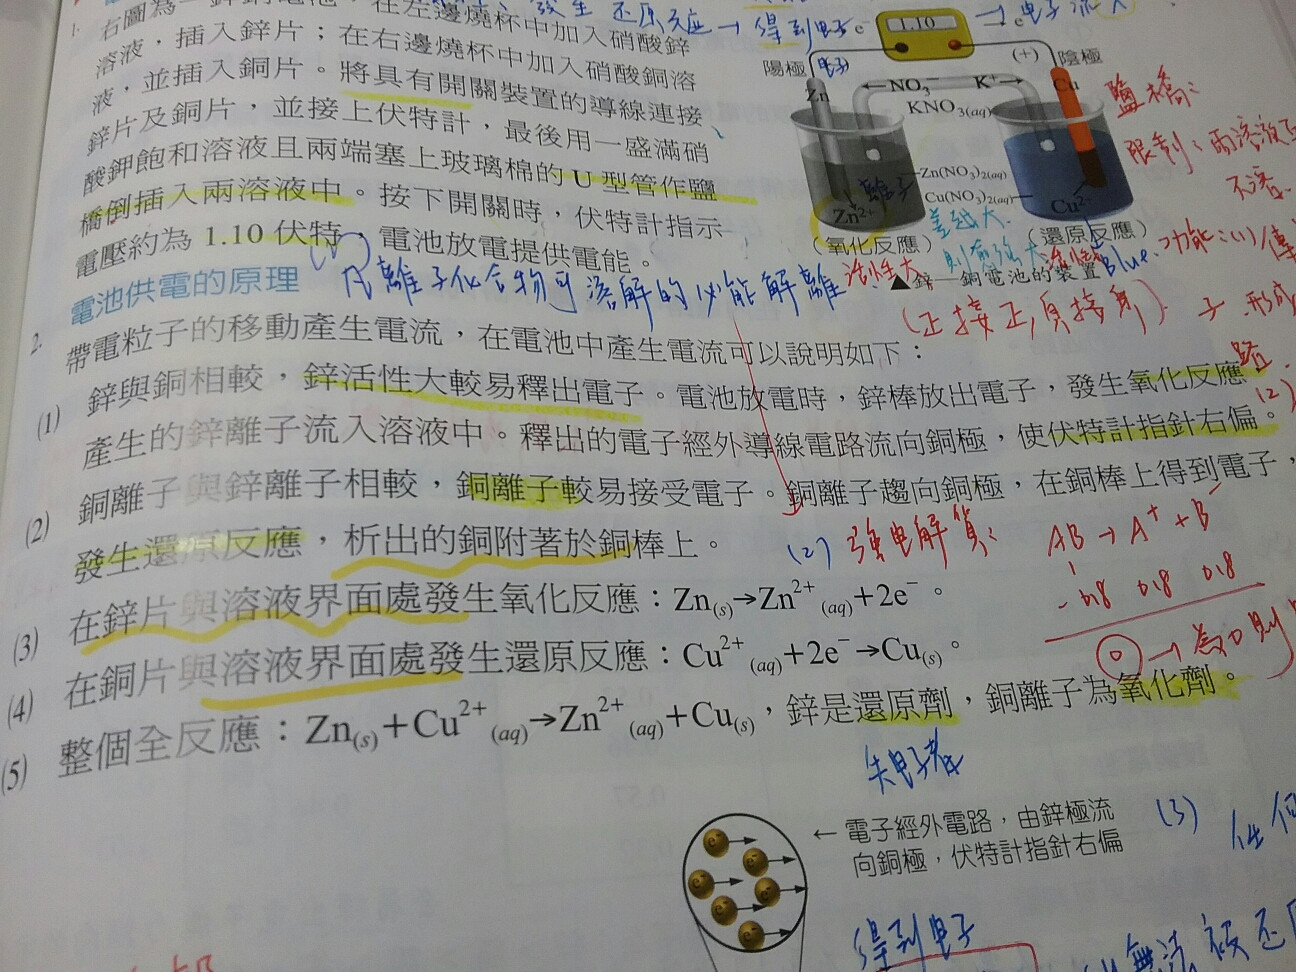 1. 右圖為一鋅銅電池，在左邊燒杯中加入硝酸鋅
溶液，插入鋅片；在右邊燒杯中加入硝酸銅溶
液，並插入銅片。將具有開關裝置的導線連接
鋅片及銅片，並接上伏特計，最後用一盛滿硝
酸鉀飽和溶液且兩端塞上玻璃棉的 U 型管作鹽
橋倒插入兩溶液中。按下開關時，伏特計指示
電壓約為 1.10 伏特，電池放電提供電能。
發生 還原反應→得到電子 e⁻
1.10
→ e⁻電子流大
陽極
電子
(+)
陰極
Zn
←NO₃⁻ K⁺→
Cu
KNO₃(aq)
離子
Zn(NO₃)₂(aq)
Cu(NO₃)₂(aq)
Zn²⁺
Cu²⁺
差越大
(氧化反應)
(還原反應)
活性大
Blue
▲鋅—銅電池的裝置
鹽橋：
限制：兩溶液互
不溶
功能：(1)傳
(正接正,負接負)
子 形成
路
(2)
電池供電的原理
(1) 凡離子化合物可溶解的必能解離
2. 帶電粒子的移動產生電流，在電池中產生電流可以說明如下：
(1) 鋅與銅相較，鋅活性大較易釋出電子。電池放電時，鋅棒放出電子，發生氧化反應
產生的鋅離子流入溶液中。釋出的電子經外導線電路流向銅極，使伏特計指針右偏。
(2) 銅離子與鋅離子相較，銅離子較易接受電子。銅離子趨向銅極，在銅棒上得到電子，
發生還原反應，析出的銅附著於銅棒上。
(2) 強電解質：
AB → A⁺ + B⁻
1
-0.8 0.8 0.8
0 → 為0則
(3) 在鋅片與溶液界面處發生氧化反應：Zn(s)→Zn²⁺(aq)+2e⁻。
(4) 在銅片與溶液界面處發生還原反應：Cu²⁺(aq)+2e⁻→Cu(s)。
(5) 整個全反應：Zn(s)+Cu²⁺(aq)→Zn²⁺(aq)+Cu(s)，鋅是還原劑，銅離子為氧化劑。
失電子者
← 電子經外電路，由鋅極流
向銅極，伏特計指針右偏
(3) 任何
得到電子
無法被還原